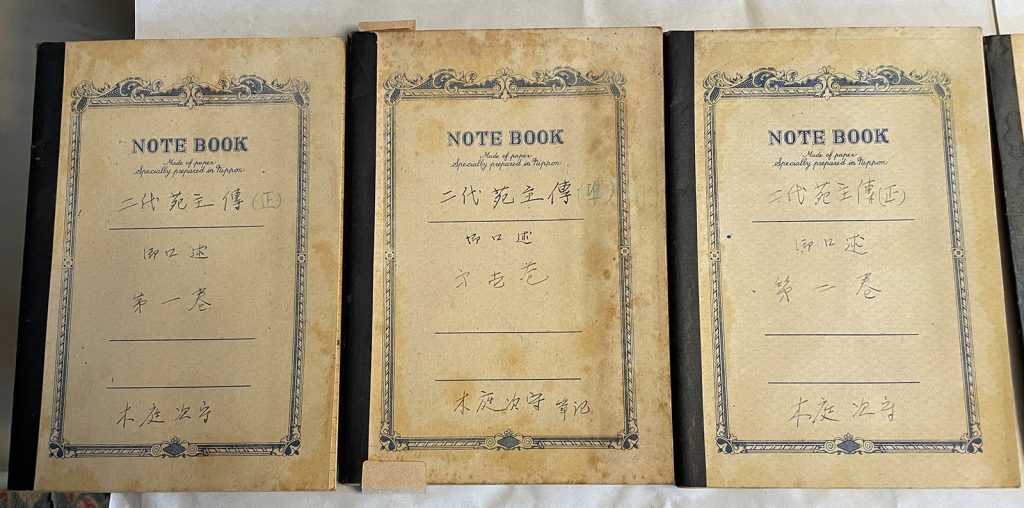 NOTE BOOK
Made of paper
Specially prepared in Nippon
二代苑主傳(正)
御口述
第一巻
木庭次守
NOTE BOOK
Made of paper
Specially prepared in Nippon
二代苑主傳(準)
御口述
第壱巻
木庭次守 筆記
NOTE BOOK
Made of paper
Specially prepared in Nippon
二代苑主傳(正)
御口述
第一巻
木庭次守